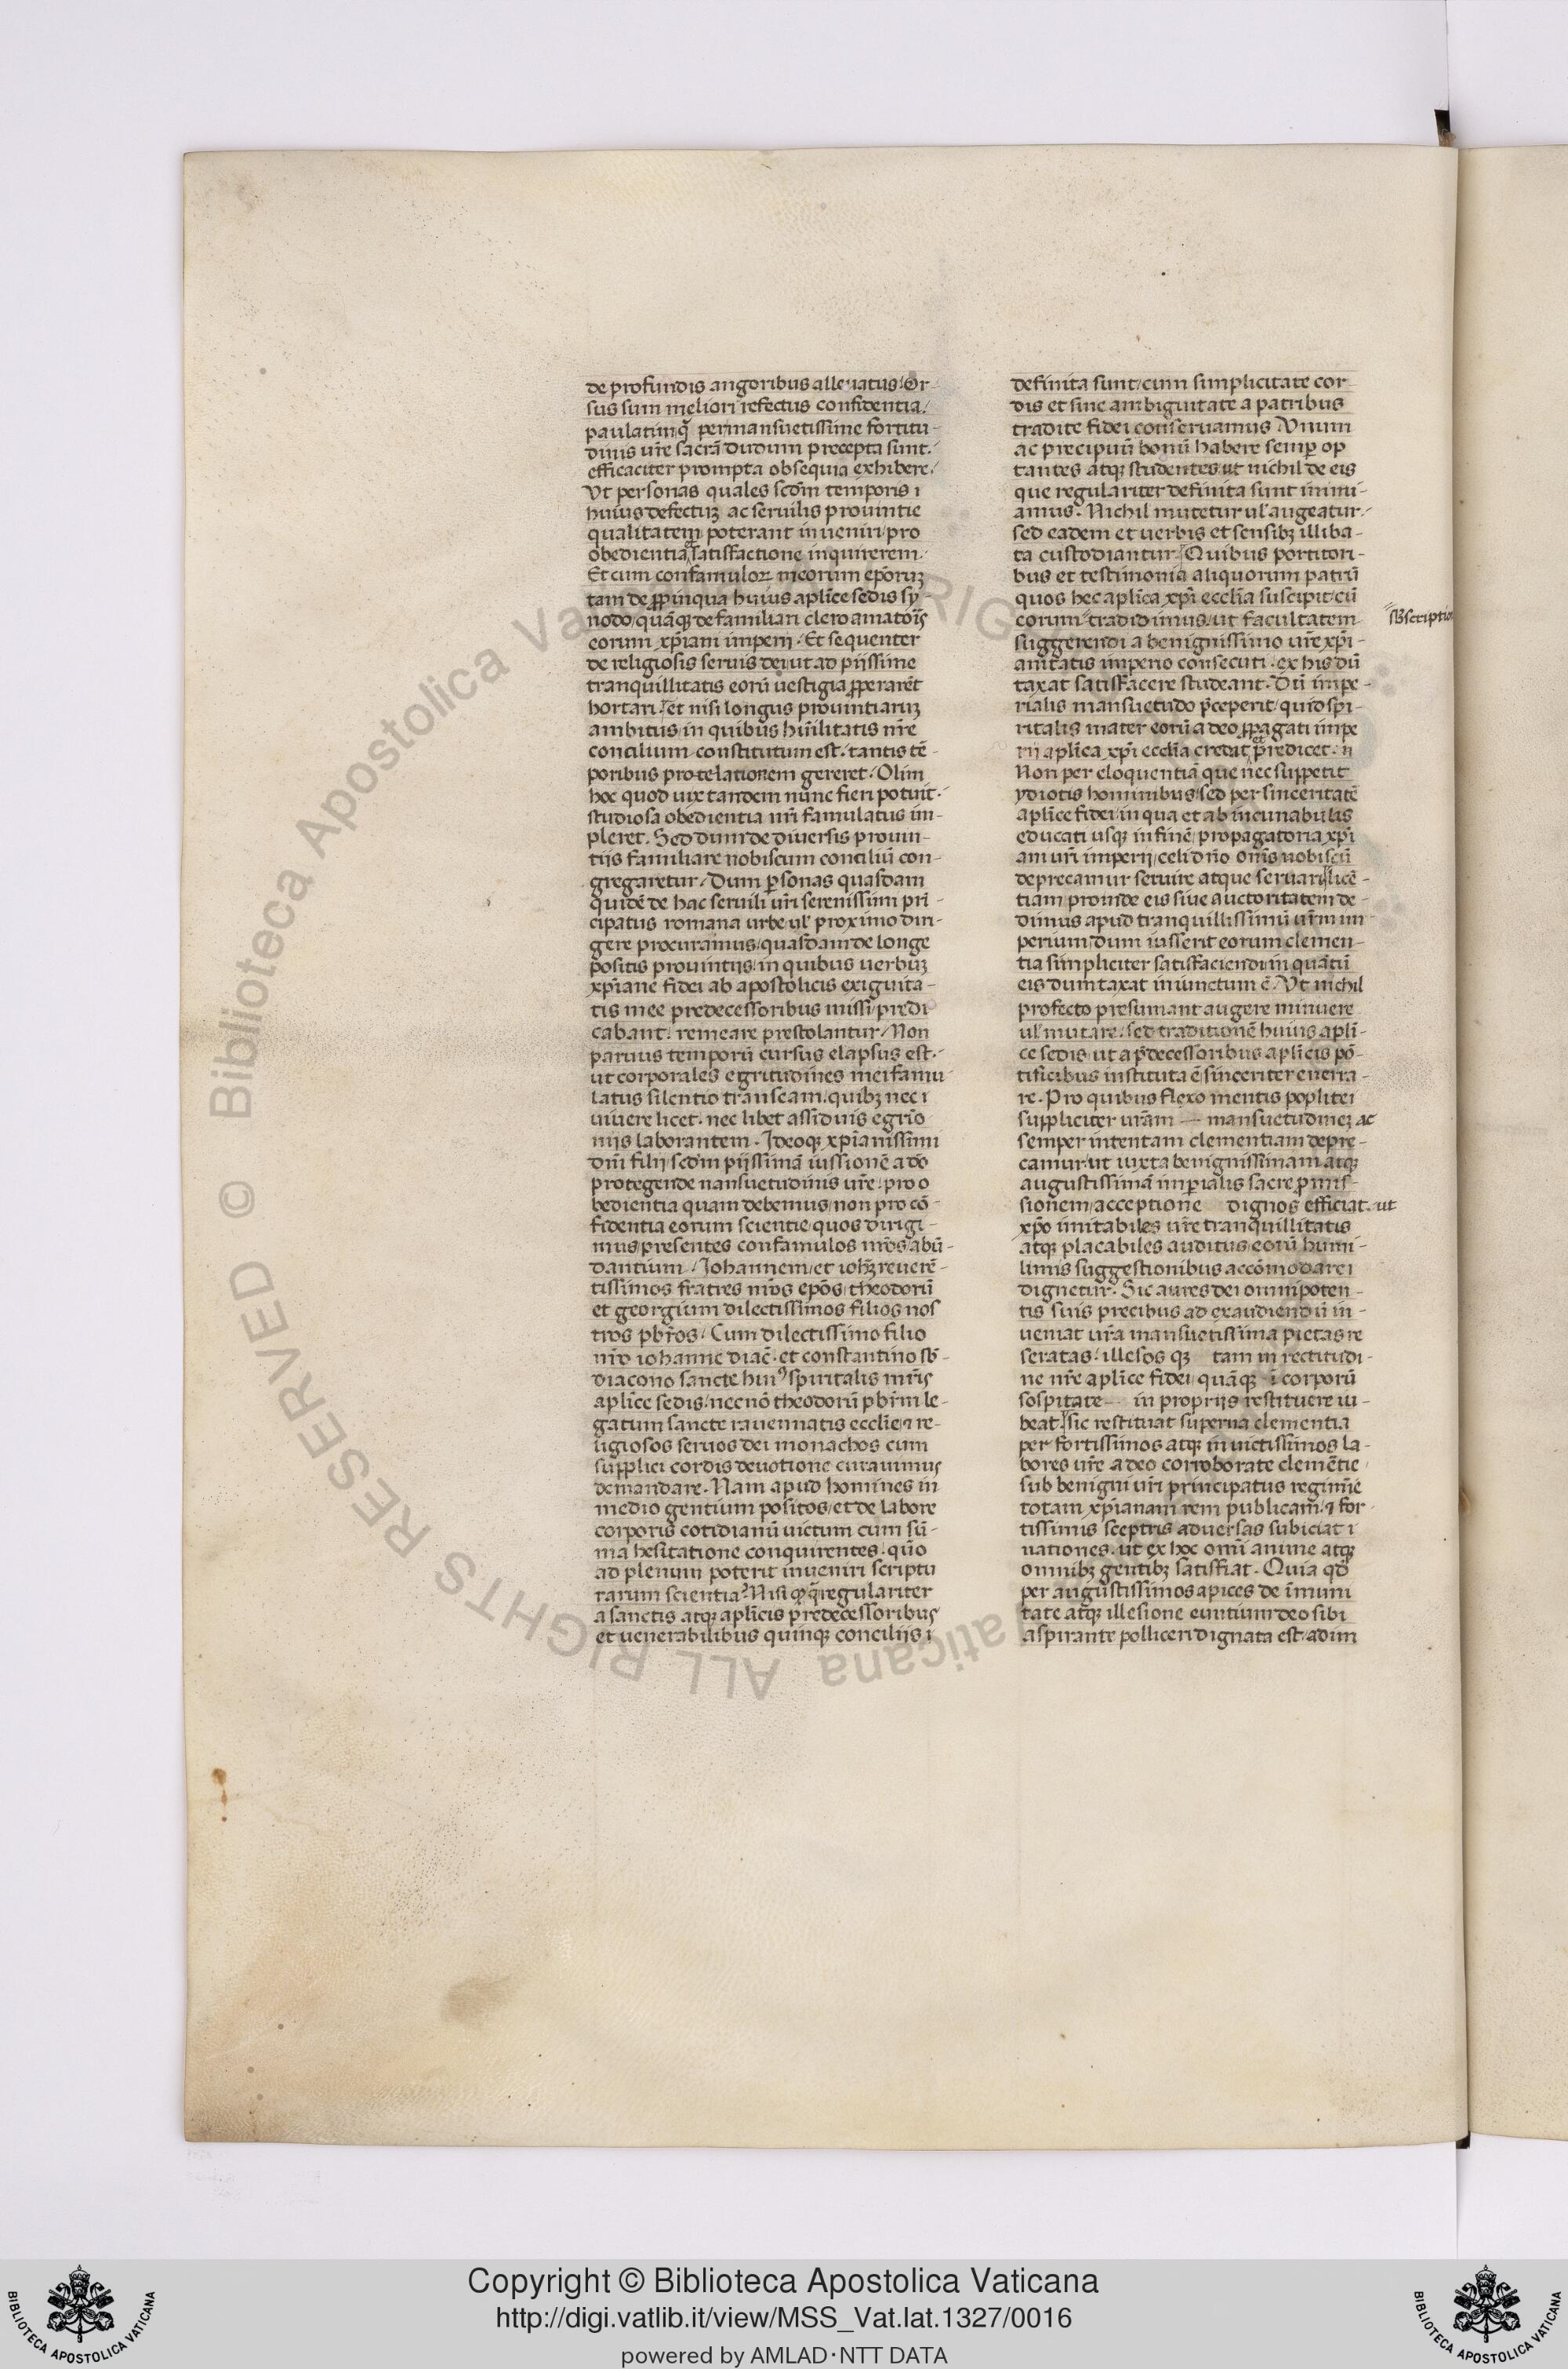 de profundis angoribus alleuatus/ Or-
sus sum meliori refectus confidentia/
paulatimq̃ permansuetissime fortitu-
dinis ur̃e sacrã dudum precepta sunt.
efficaciter prompta obsequia exhibere/
Vt personas quales scdm̃ temporis i
huius defectuꝫ ac seruilis prouintie
qualitatem poterant inueniri/ pro
obedientia satisfactione inquirerem.
Et cum confamuloꝝ meorum ep̃oruꝫ
tam de ꝓpinqua huius apl̃ice sedis sy-
nodo/ quãqꝫ de familiari clero amator̃is
eorum xp̃iani imperij. Et sequenter
de religiosis seruis dei/ ut ad pijssime
tranquillitatis eorũ uestigia ꝓperarẽt
hortari. et nisi longus prouintiaruꝫ
ambitus/ in quibus hũilitatis nr̃e
concilium constitutum est. tantis tẽ-
poribus protelationem gereret. Olim
hoc quod uix tandem nunc fieri potuit.
studiosa obedientia nr̃i famulatus im-
pleret. Sed dum de diuersis prouin-
tijs familiare nobiscum conciliũ con-
gregaretur/ Dum ꝑsonas quasdam
quidẽ de hac seruili ur̃i serenissimi pri-
cipatus romana urbe ul̃ proximo diri-
gere procuramus/ quasdam de longe
positis prouintijs/ in quibus uerbuꝫ
xp̃iane fidei ab apostolicis exiguita-
tis mee predecessoribus missi/ predi
cabant. remeare prestolantur/ Non
paruus temporũ cursus elapsus est.
ut corporales egritudines mei famu
latus silentio transeam. quibꝫ nec i
uiuere licet. nec libet assiduis egrio
nijs laborantem. Ideoqꝫ xp̃ianissimi
dñi filij/ scdm̃ pijssimã iussionẽ a dõ
protegende mansuetudinis ur̃e/ pro o
bedientia quam debemus/ non pro cõ-
fidentia eorum scientie/ quos dirigi-
mus/ presentes confamulos nr̃os abũ-
dantium/ Iohannem/ et ioh̃ꝫ reuerẽ-
tissimos fratres nr̃os ep̃os/ theodorũ
et georgium dilectissimos filios nos
tros pbr̃os/ Cum dilectissimo filio
nr̃o iohanne diac̃. et constantino sb̃-
diacono sancte huiꝰ spiritalis mr̃is
apl̃ice sedis/ necnõ theodorũ pbr̃m le-
gatum sancte rauennatis eccl̃ie/ ⁊ re-
ligiosos seruos dei monachos cum
supplici cordis deuotione curauimus
demandare. Nam apud homines in
medio gentium positos/ et de labore
corporis cotidianũ uictum cum sũ-
ma hesitatione conquirentes. quõ
ad plenum poterit inueniri scriptu
rarum scientia? Nisi ꝙ q̃ regulariter
a sanctis atqꝫ apl̃icis predecessoribus
et uenerabilibus quinqꝫ concilijs i
definita sunt/ cum simplicitate cor-
dis et sine ambiguitate a patribus
tradite fidei conseruamus Vnum
ac precipuũ bonũ habere semꝑ op
tantes atqꝫ studentes/ ut nichil de eis
que regulariter definita sunt inmi-
amus. Nichil mutetur ul̃ augeatur.
sed eadem et uerbis et sensibꝫ illiba-
ta custodiantur. Quibus portitori-
bus et testimonia aliquorum patrũ
quos hec apl̃ica xp̃i eccl̃ia suscipit/ cũ
eorum tradidimus/ ut facultatem
sb̃scriptio
suggerendi a benignissimo ur̃e xp̃i-
anitatis imperio consecuti. ex his dũ
taxat satisfacere studeant. Dũ impe-
rialis mansuetudo p̃ceperit/ quid spi-
ritalis mater eorũ a deo ꝓpagati impe
rij apl̃ica xp̃i eccl̃ia credat et p̃redicet. ñ
Non per eloquentiã que nec suppetit
ydiotis hominibus/ sed per sinceritatẽ
apl̃ice fidei/ in qua et ab incunabulis
educati usqꝫ in finẽ/ propagatoria xp̃i
ani ur̃i imperij/ celi dño om̃s nobiscũ
deprecamur seruire atque seruari/ licẽ-
tiam proinde eis siue auctoritatem de-
dimus apud tranquillissimũ ur̃m im-
perium/ dum iusserit eorum clemen-
tia simpliciter satisfaciendi/ in quãtũ
eis dumtaxat iniunctum ẽ/ Vt nichil
profecto presumant augere minuere
ul̃ mutare. sed traditionẽ huius apl̃i-
ce sedis/ ut a p̃decessoribus apl̃icis põ-
tificibus instituta ẽ/ sinceriter enarra-
re. Pro quibus flexo mentis poplite i
suppliciter ur̃am — mansuetudineꝫ ac
semper intentam clementiam depre-
camur/ ut iuxta benignissimam atqꝫ
augustissimã imꝑialis sacre ꝓmis-
sionem/ acceptione dignos efficiat. ut
xp̃o imitabiles ur̃e tranquillitatis
atqꝫ placabiles auditus/ eorũ humi-
limis suggestionibus accõmodare i
dignetur. Sic aures dei omnipoten-
tis suis precibus ad exaudiendũ in-
ueniat ur̃a mansuetissima pietas re
seratas. illesos qꝫ tam in rectitudi-
ne nr̃e apl̃ice fidei/ quãqꝫ ĩ corporũ
sospitate — in proprijs restituere iu-
beat. sic restituat superna clementia
per fortissimos atqꝫ inuictissimos la-
bores ur̃e a deo corroborate clemẽtie
sub benigni ur̃i principatus regimĩe
totam xp̃ianam rem publicam. ⁊ for-
tissimis sceptris aduersas subiciat i
nationes. ut ex hoc omĩ anime atqꝫ
omnibꝫ gentibꝫ satisfiat. Quia qd̃
per augustissimos apices de ĩmuni
tate atqꝫ illesione euntium deo sibi
aspirante polliceri dignata est/ adim
BIBLIOTECA APOSTOLICA VATICANA
Copyright © Biblioteca Apostolica Vaticana
http://digi.vatlib.it/view/MSS_Vat.lat.1327/0016
powered by AMLAD·NTT DATA
BIBLIOTECA APOSTOLICA VATICANA
© Biblioteca Apostolica Vaticana ALL RIGHTS RESERVED